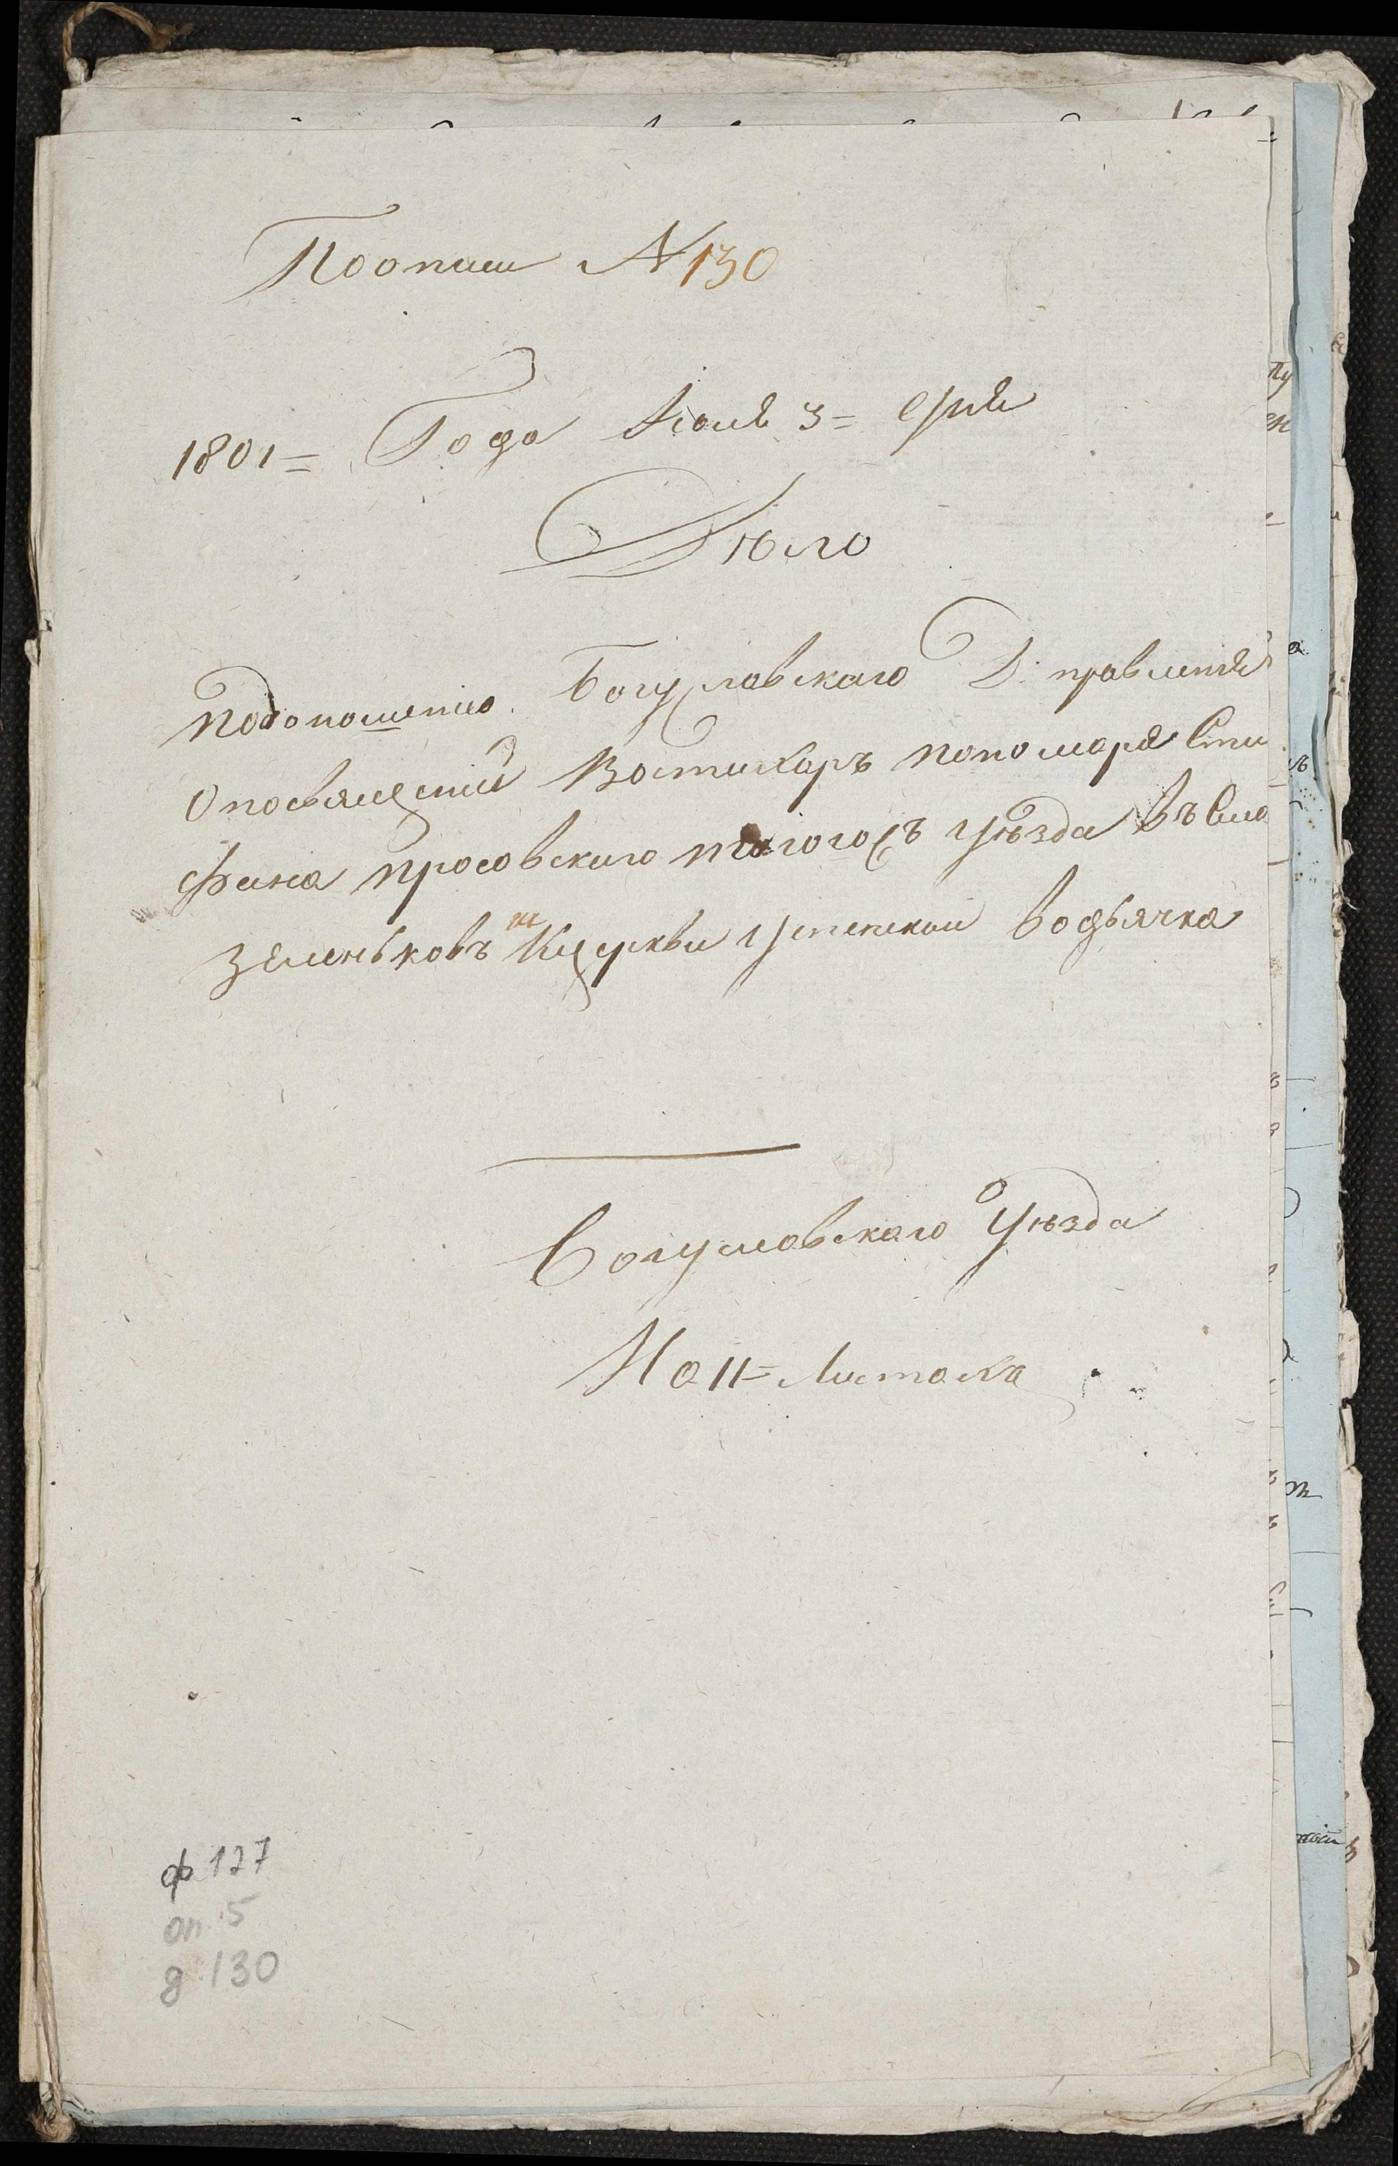 Поописи № 130
1801= Года Июля 3= дня
Дѣло
Подоношению Богуславского Д: правления
Опосвящении Востихарь пономаря Сти
Фана Просовского тогогожъ уѣзда въ Село
Зеленьковъ к Церкви успенской водьячка
Богуславского Уѣзда
На 11= Листаха
ф 127
оп. 5
д. 130